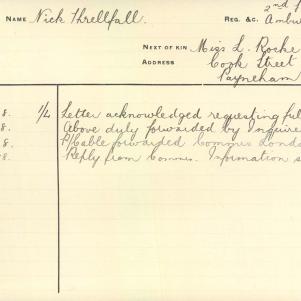 NAME Nick Threllfall. REG. &C. 2nd
Ambu
NEXT OF KIN Miss L. Rocke
ADDRESS Cook Street
Payneham
8. 1/4 Letter acknowledged requesting full
8. Above duly forwarded by Inquire
8. P/Cable forwarded Commrs Londo
8. Reply from Commrs. Information s